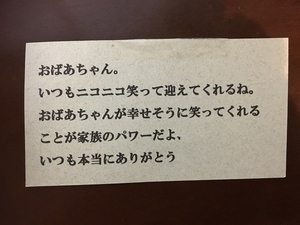 おばあちゃん。
いつもニコニコ笑って迎えてくれるね。
おばあちゃんが幸せそうに笑ってくれる
ことが家族のパワーだよ、
いつも本当にありがとう